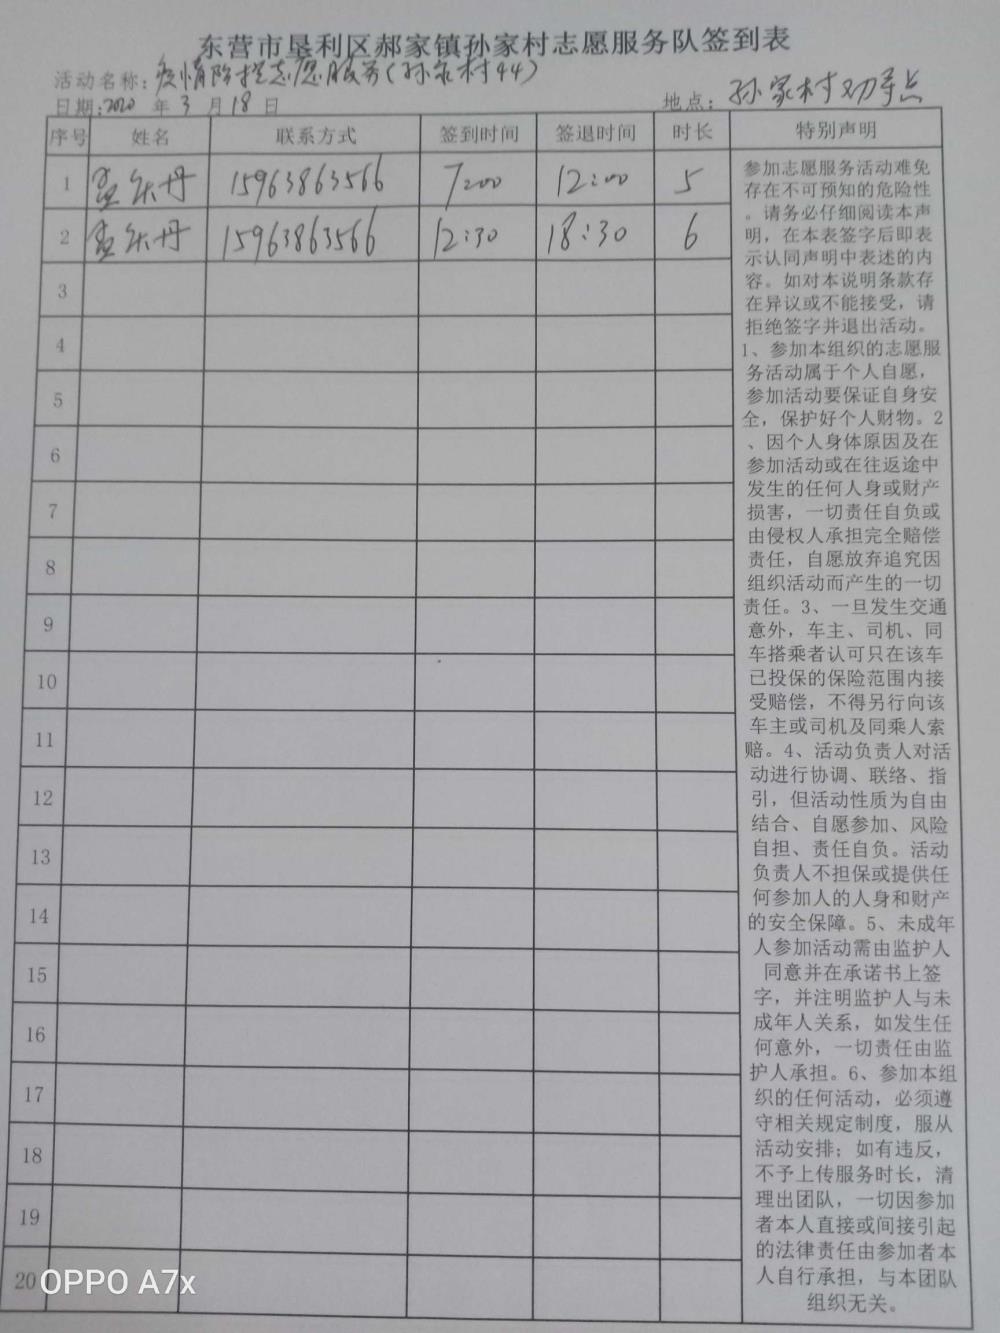 东营市垦利区郝家镇孙家村志愿服务队签到表
活动名称：疫情防控志愿服务(孙家村44)
日期：2020 年 3 月 18 日 地点：孙家村劝导点
序号 姓名 联系方式 签到时间 签退时间 时长 特别声明
1 孟 丹 15963863566 7:00 12:00 5
2 孟 丹 15963863566 12:30 18:30 6
3
4
5
6
7
8
9
10
11
12
13
14
15
16
17
18
19
20
参加志愿服务活动难免
存在不可预知的危险性
。请务必仔细阅读本声
明，在本表签字后即表
示认同声明中表述的内
容。如对本说明条款存
在异议或不能接受，请
拒绝签字并退出活动。
1、参加本组织的志愿服
务活动属于个人自愿，
参加活动要保证自身安
全，保护好个人财物。2
、因个人身体原因及在
参加活动或在往返途中
发生的任何人身或财产
损害，一切责任自负或
由侵权人承担完全赔偿
责任，自愿放弃追究因
组织活动而产生的一切
责任。3、一旦发生交通
意外，车主、司机、同
车搭乘者认可只在该车
已投保的保险范围内接
受赔偿，不得另行向该
车主或司机及同乘人索
赔。4、活动负责人对活
动进行协调、联络、指
引，但活动性质为自由
结合、自愿参加、风险
自担、责任自负。活动
负责人不担保或提供任
何参加人的人身和财产
的安全保障。5、未成年
人参加活动需由监护人
同意并在承诺书上签
字，并注明监护人与未
成年人关系，如发生任
何意外，一切责任由监
护人承担。6、参加本组
织的任何活动，必须遵
守相关规定制度，服从
活动安排；如有违反，
不予上传服务时长，清
理出团队，一切因参加
者本人直接或间接引起
的法律责任由参加者本
人自行承担，与本团队
组织无关。
OPPO A7x